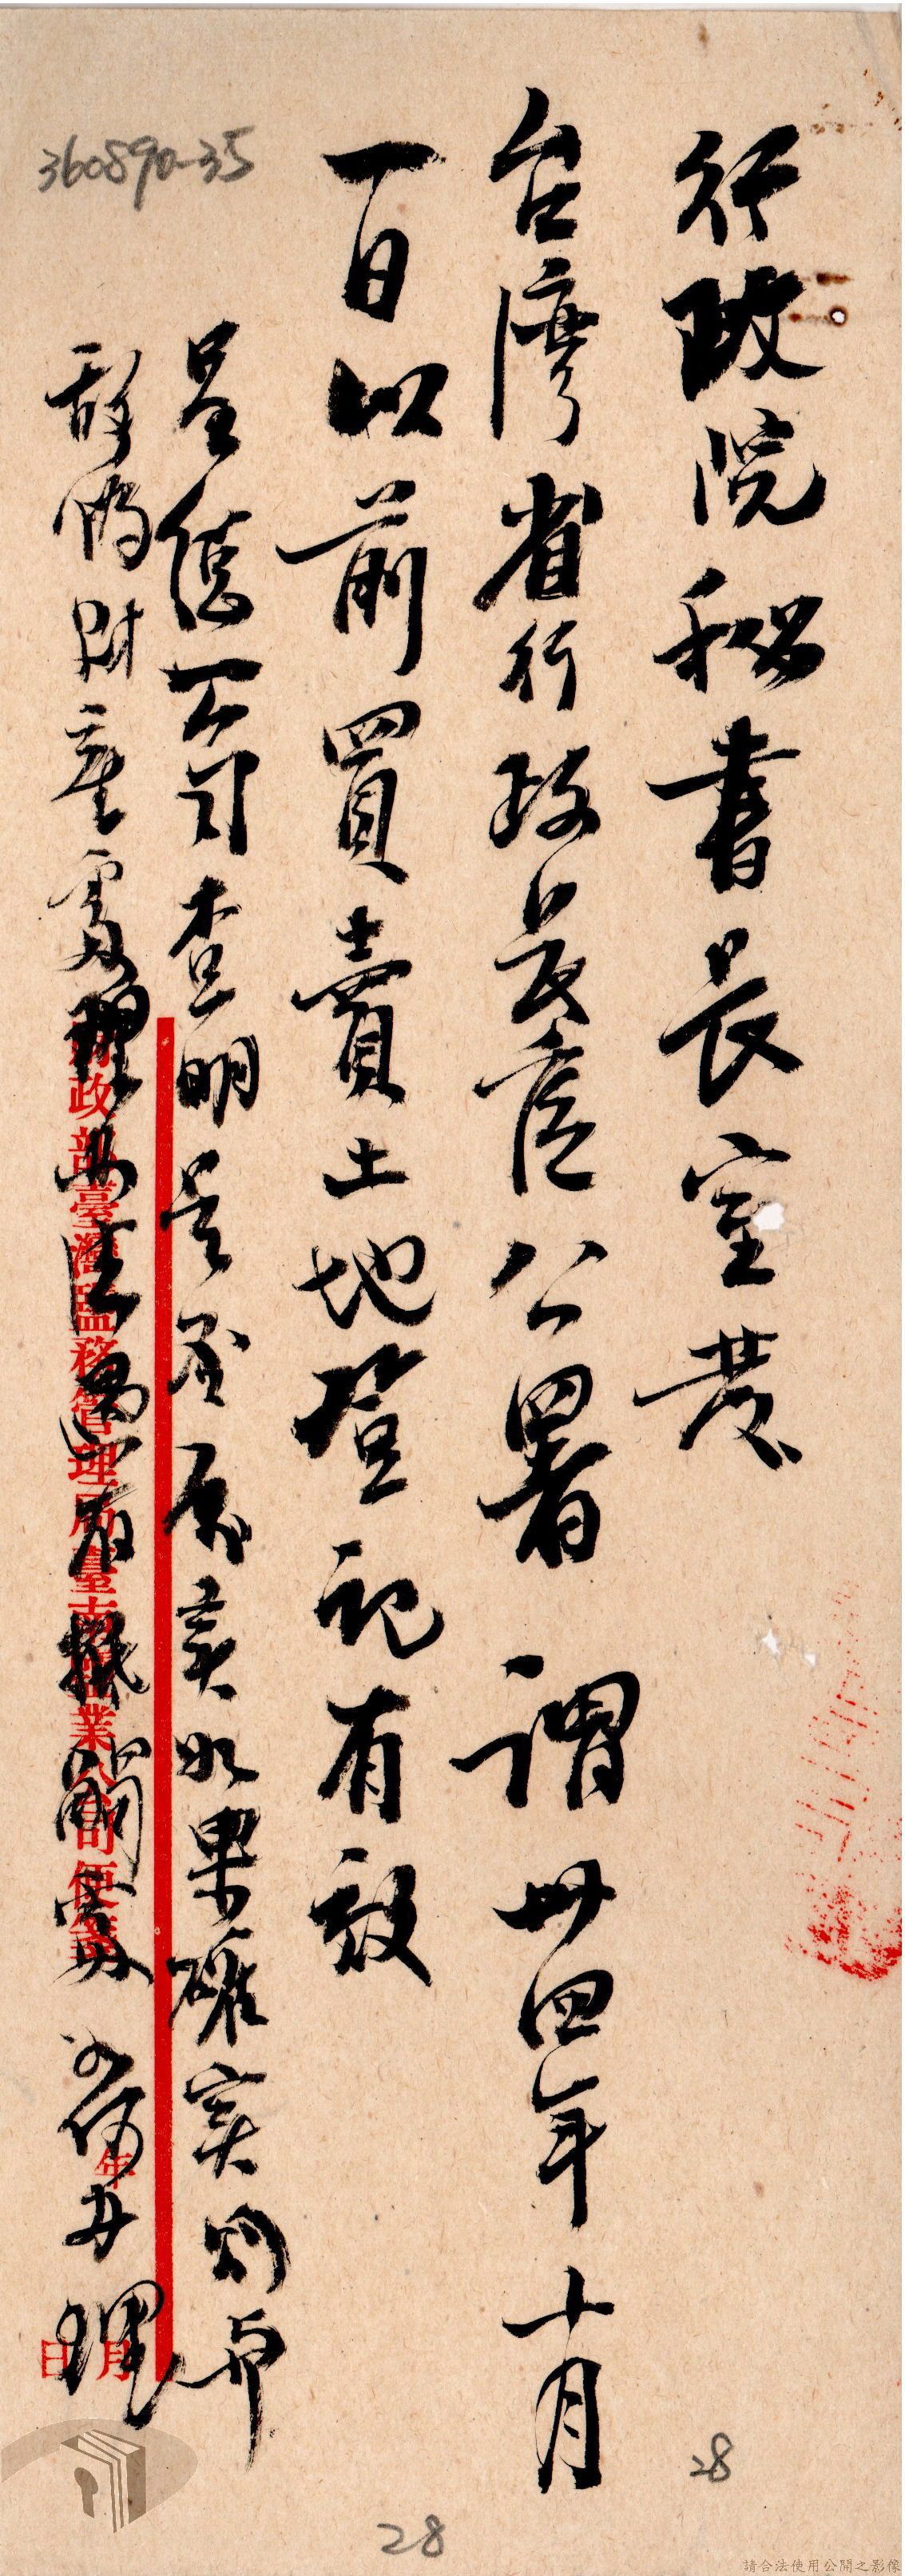 行政院秘書長室發
台灣省行政長官公署 謂卅四年十月
一日以前買賣土地登記有效
呈繕公司查明是否屬實如果確實則與
敵偽財產處理辦法遇有抵觸處如何办理
財政部臺灣鹽務管理局臺南鹽業公司便箋
年 月 日
360890-35
28
28
請合法使用公開之影像